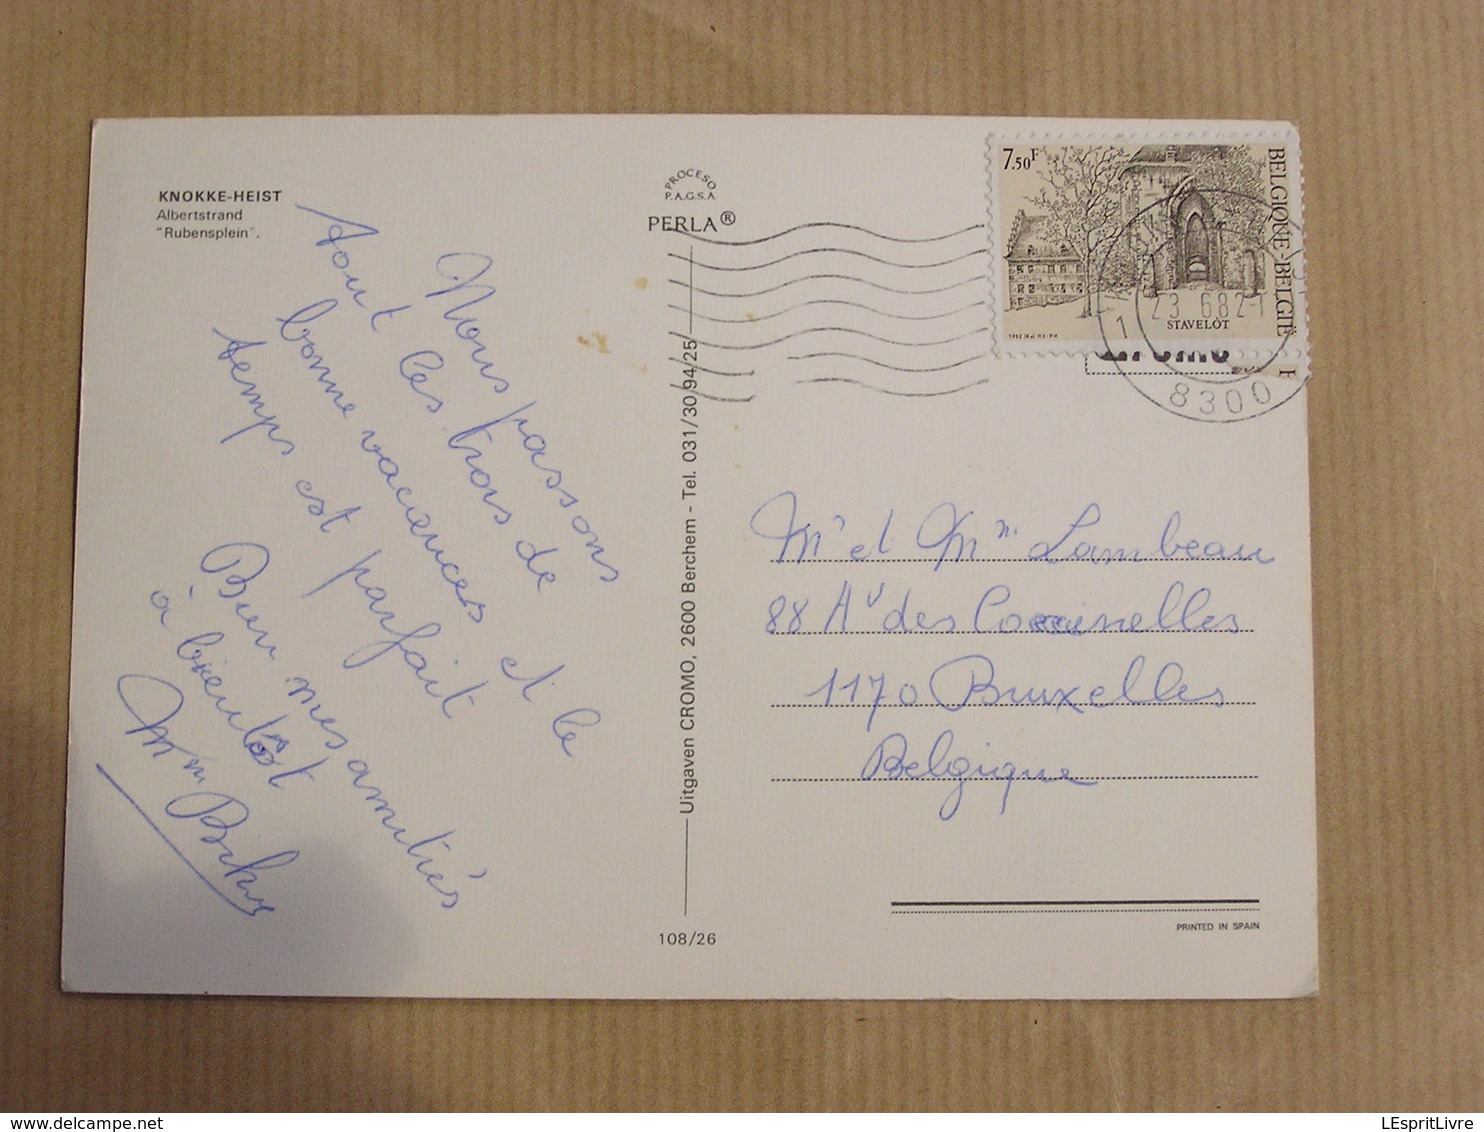 KNOKKE-HEIST
Albertstrand
"Rubensplein".
PROCESO
P.A.G.S.A.
PERLA®
Nous passons
tout les trois de
bonne vacances et le
temps est parfait
Bien mes amitiés
à bientôt
Uitgaven CROMO, 2600 Berchem - Tel. 031/30/94/25
108/26
7.50F
BELGIQUE-BELGIË
STAVELOT
23 6 82-1
8300
Mr et Mm. Lambeau
88 Av des Coccinelles
1170 Bruxelles
Belgique
PRINTED IN SPAIN
delcampe.net
LEspritLivre